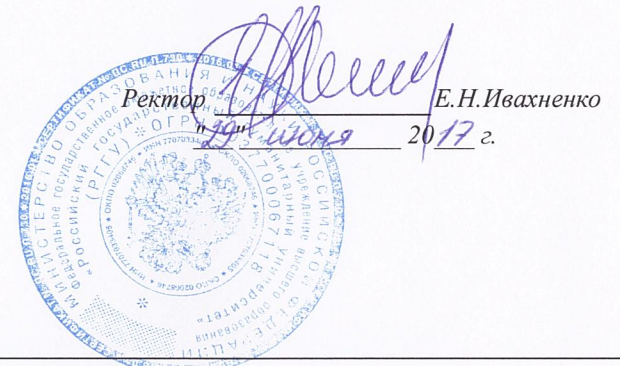 Ректор Е.Н.Ивахненко
"29" июня 2017 г.
МИНИСТЕРСТВО ОБРАЗОВАНИЯ И НАУКИ РОССИЙСКОЙ ФЕДЕРАЦИИ
Федеральное государственное бюджетное образовательное учреждение высшего образования
«Российский государственный гуманитарный университет»
(РГГУ) * ОГРН 1037700067118
ИНН 7707033405 * ОКПО 02068746